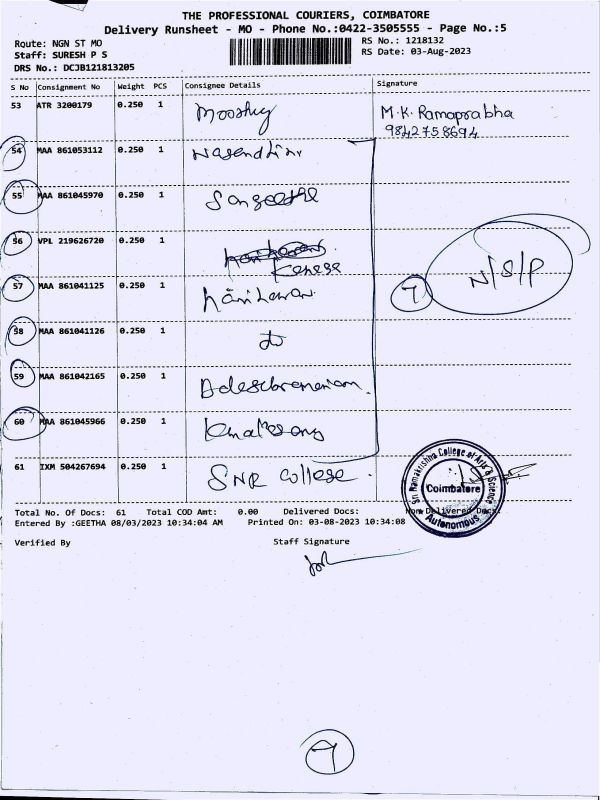 THE PROFESSIONAL COURIERS, COIMBATORE
Delivery Runsheet - MO - Phone No.:0422-3505555 - Page No.:5
Route: NGN ST MO
Staff: SURESH P S
DRS No.: DCJB121813205
RS No.: 1218132
RS Date: 03-Aug-2023
S No Consignment No Weight PCS Consignee Details Signature
53 ATR 3200179 0.250 1 M.K. Ramaprabha
9842758694
54 MAA 861053112 0.250 1
55 MAA 861045970 0.250 1 Sangeetha
56 VPL 219626720 0.250 1
57 MAA 861041125 0.250 1 hariharan 7 N/S/P
58 MAA 861041126 0.250 1 do
59 MAA 861042165 0.250 1
60 MAA 861045966 0.250 1
61 IXM 504267694 0.250 1 SNR College
Sri Ramakrishna College of Arts & Science
Coimbatore
Autonomous
Total No. Of Docs: 61 Total COD Amt: 0.00 Delivered Docs: Non Delivered Docs:
Entered By :GEETHA 08/03/2023 10:34:04 AM Printed On: 03-08-2023 10:34:08
Verified By Staff Signature
7